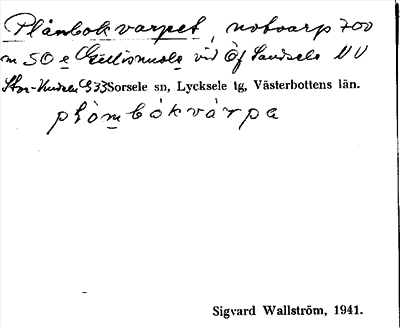 Plånbokvarpet, notvarp 700
m SO e Gällionuole vid Öf Sandsele NV
Stor-Vindeln G33 Sorsele sn, Lycksele tg, Västerbottens län.
plò̀mbòkvàrpa
Sigvard Wallström, 1941.